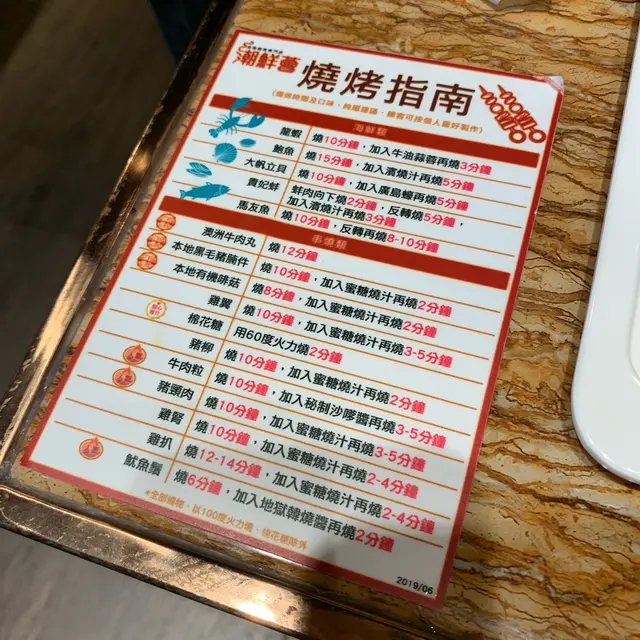 潮鮮薈
燒烤指南
(燒烤時間及口味，純屬建議，顧客可按個人喜好製作)
海鮮類
龍蝦 燒10分鐘，加入牛油蒜蓉再燒3分鐘
鮑魚 燒15分鐘，加入濱燒汁再燒5分鐘
大帆立貝 燒10分鐘，加入廣島蠔再燒5分鐘
貴妃蚌 鮮肉向下燒2分鐘，反轉燒5分鐘，
加入濱燒汁再燒3分鐘
馬友魚 燒10分鐘，反轉再燒8-10分鐘
串燒類
澳洲牛肉丸 燒12分鐘
本地黑毛豬腩件 燒10分鐘，加入蜜糖燒汁再燒2分鐘
本地有機啡菇 燒8分鐘，加入蜜糖燒汁再燒2分鐘
雞翼 燒10分鐘，加入蜜糖燒汁再燒3-5分鐘
棉花糖 用60度火力燒2分鐘
豬柳 燒10分鐘，加入蜜糖燒汁再燒2分鐘
牛肉粒 燒10分鐘，加入秘制沙嗲醬再燒3-5分鐘
豬頸肉 燒10分鐘，加入蜜糖燒汁再燒3-5分鐘
雞腎 燒10分鐘，加入蜜糖燒汁再燒2-4分鐘
雞扒 燒12-14分鐘，加入蜜糖燒汁再燒2-4分鐘
魷魚鬚 燒6分鐘，加入地獄韓燒醬再燒2分鐘
*全部燒物，以100度火力燒，棉花糖除外
2019/06